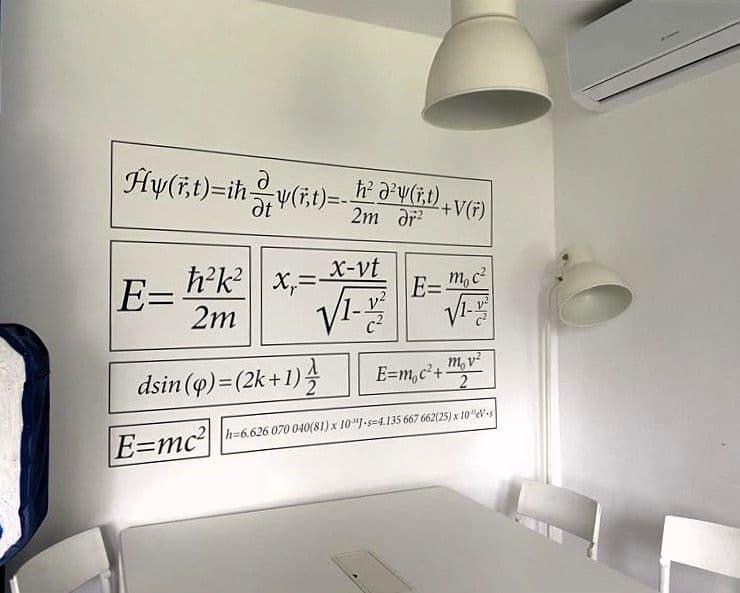 Ĥψ(r⃗,t)=iℏ ∂/∂t ψ(r⃗,t)=-ℏ²/2m ∂²ψ(r⃗,t)/∂r⃗² +V(r⃗)
E= ℏ²k²/2m
xᵣ= x-vt/√1-v²/c²
E= m₀c²/√1-v²/c²
dsin(φ)=(2k+1) λ/2
E=m₀c²+ m₀v²/2
E=mc²
h=6.626 070 040(81) x 10⁻³⁴J·s=4.135 667 662(25) x 10⁻¹⁵eV·s